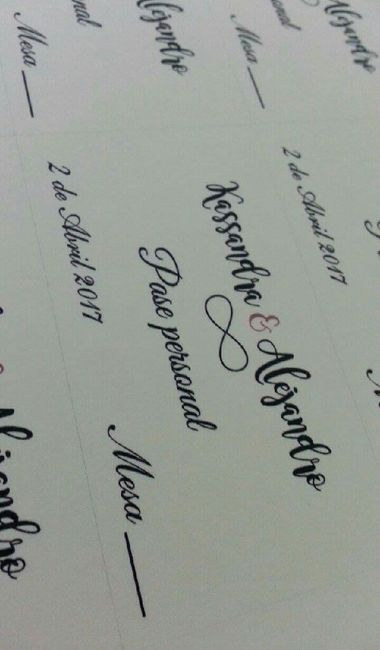 Alejandro
onal
Mesa ___
2 de Abril 2017
Alejandro
Kassandra & Alejandro
nal
Pase personal
Mesa ___
2 de Abril 2017
Mesa ___